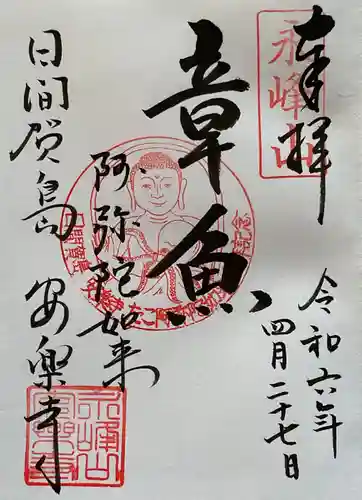 奉拝
永峰山
令和六年
四月二十七日
章魚
阿弥陀如来
日間賀島
安楽寺
永峰山